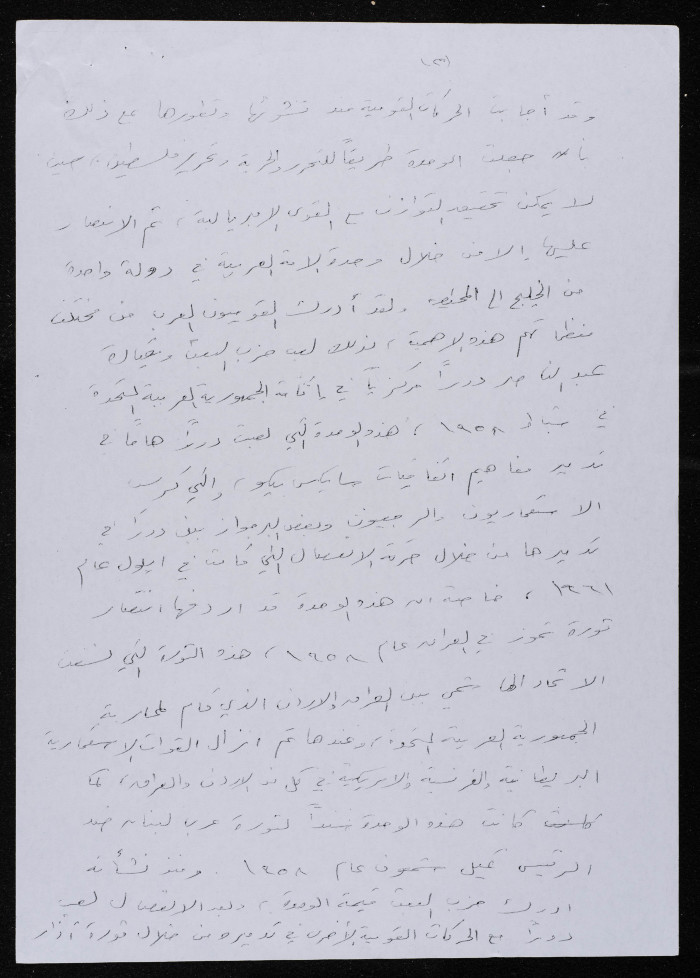 (٣)
وقد أجابت الحركات القومية منذ نشوئها وتطورها مع ذلك
بأن جعلت الوحدة طريقاً للتحرر والحرية وتحرير فلسطين، حيث
لا يمكن تحقيق التوازن مع القوى الامبريالية، ثم الانتصار
عليها إلا من خلال وحدة الامة العربية في دولة واحدة
من الخليج الى المحيط. ولقد أدرك القوميون العرب من مختلف
منظماتهم هذه الاهمية، لذلك لعب حزب البعث وبقيادة
عبد الناصر دوراً مركزياً في إقامة الجمهورية العربية المتحدة
في شباط ١٩٥٨، هذه الوحدة التي لعبت دوراً هاماً في
تدمير مفاهيم اتفاقيات سايكس بيكو، والتي
الاستعماريون والرجعيون وبعض البرجوازيين دوراً في
تدميرها من خلال حركة الانفصال التي قامت في ايلول عام
١٩٦١، خاصة ان هذه الوحدة قد اردفها انتصار
ثورة تموز في العراق عام ١٩٥٨، هذه الثورة التي نسفت
الاتحاد الهاشمي بين العراق والاردن الذي قام لمحاربة
الجمهورية العربية المتحدة، وعندها تم انزال القوات الاستعمارية
البريطانية والفرنسية والامريكية في كل من الاردن والعراق، كما
كانت كانت هذه الوحدة سنداً لثورة عرب لبنان ضد
الرئيس كميل شمعون عام ١٩٥٨. ومنذ نشأته
ادرك حزب البعث قيمة الوحدة، وبعد الانفصال لعب
دوراً مع الحركات القومية الأخرى في تدميره من خلال ثورة آذار